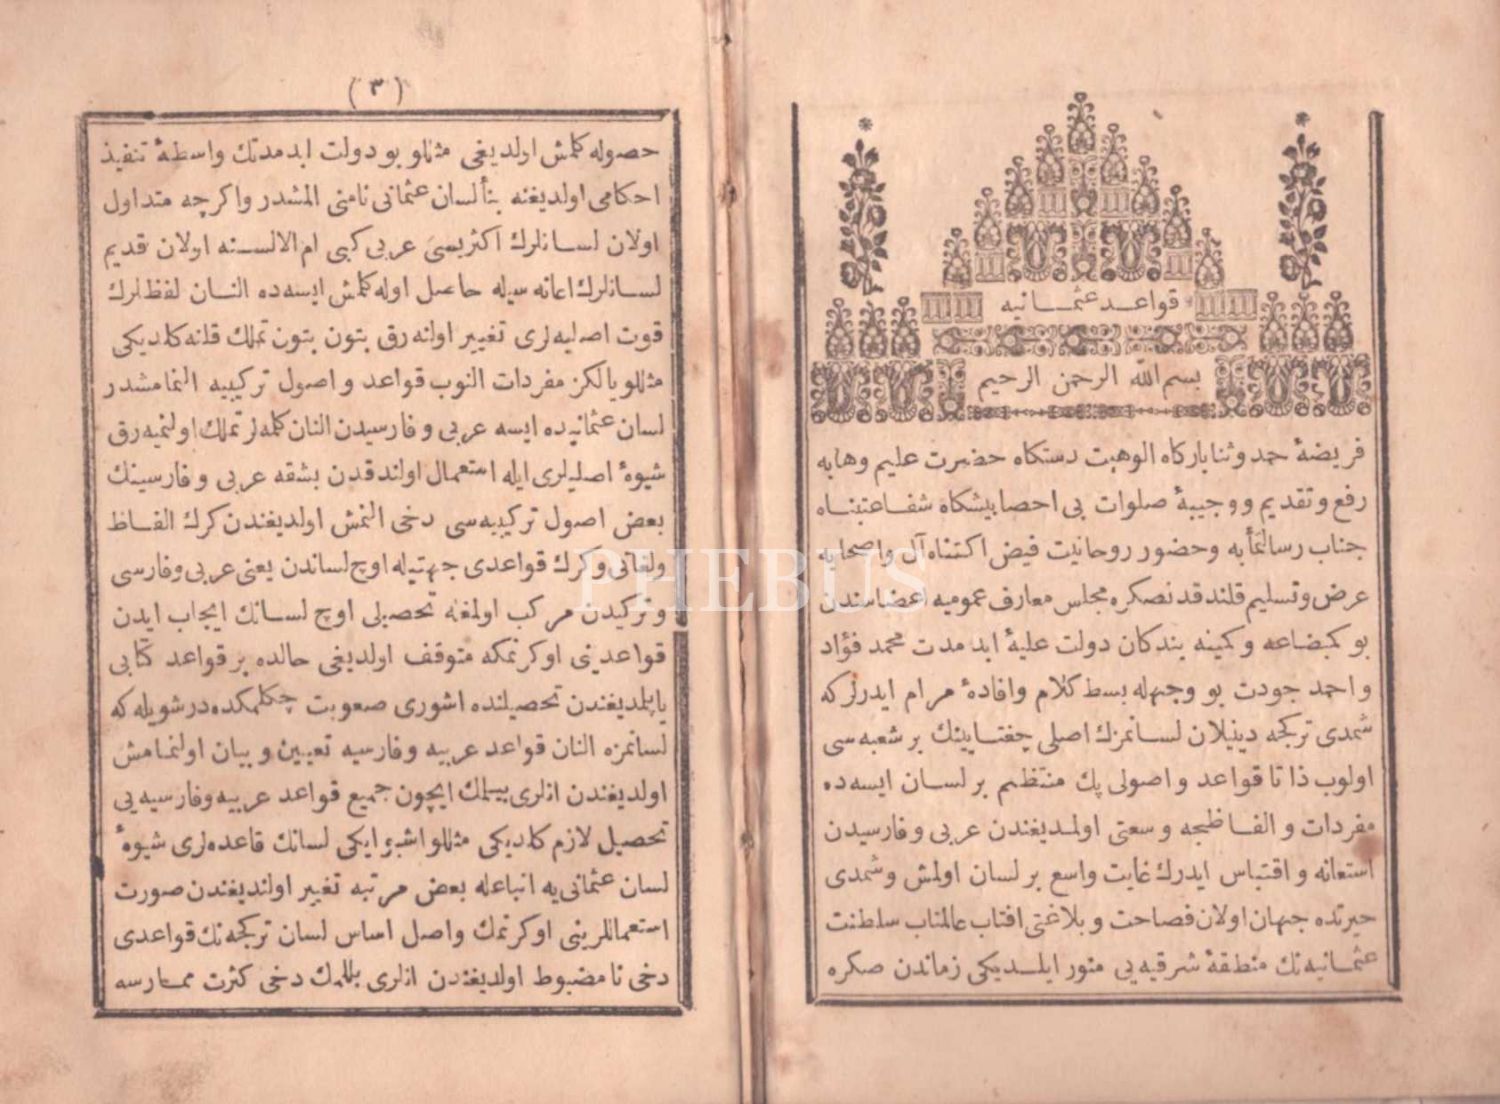 قواعد عثمانيه
بسم الله الرحمن الرحيم
فريضهٔ حمد وثنا باركاه الوهيت دستكاه حضرت عليم وهابه
رفع وتقديم ووجيبهٔ صلوات بى احصا پيشكاه شفاعتپناه
جناب رسالتمأبه وحضور روحانيت فيض اكتناه آل واصحابه
عرض وتسليم قلندقدنصكره مجلس معارف عموميه اعضاسندن
بو كمبضاعه وكمينه بندكان دولت عليهٔ ابد مدت محمد فؤاد
واحمد جودت بو وجهله بسط كلام وافادهٔ مرام ايدرزكه
شمدى تركجه دينيلان لسانمزك اصلى چغتايينك بر شعبه سى
اولوب ذاتا قواعد واصولى پك منتظم بر لسان ايسه ده
مفردات والفاظجه وسعتى اولمديغندن عربى وفارسيدن
استعانه واقتباس ايدرك غايت واسع بر لسان اولمش وشمدى
حيرتده جهان اولان فصاحت وبلاغتى افتاب عالمتاب سلطنت
عثمانيه نك منطقهٔ شرقيه يى منور ايلديكى زماندن صكره
(٣)
حصوله كلمش اولديغى مثللو بو دولت ابدمدتك واسطهٔ تنفيذ
احكامى اولديغنه بناً لسان عثمانى نامنى المشدر واكرچه متداول
اولان لسانلرك اكثريسى عربى كبى ام الالسنه اولان قديم
لسانلرك اعانه سيله حاصل اوله كلمش ايسه ده النان لفظلرك
قوت اصليه لرى تغيير اولنه رق بتون بتون تملك قلنه كلديكى
مثللو يالكز مفردات النوب قواعد واصول تركيبيه النمامشدر
لسان عثمانيده ايسه عربى وفارسيدن النان كلمه لر تملك اولنميه رق
شيوهٔ اصليلرى ايله استعمال اولندقدن بشقه عربى وفارسينك
بعض اصول تركيبيه سى دخى النمش اولديغندن كرك الفاظ
ولغاتى وكرك قواعدى جهتيله اوچ لساندن يعنى عربى وفارسى
وتركيدن مركب اولمغله تحصيلى اوچ لسانك ايجاب ايدن
قواعدينى اوكرنمكه متوقف اولديغى حالده بر قواعد كتابى
ياپلمديغندن تحصيلنده اشورى صعوبت چكلمكده در شويله كه
لسانمزه النان قواعد عربيه وفارسيه تعيين وبيان اولنمامش
اولديغندن انلرى بيلمك ايچون جميع قواعد عربيه وفارسيه يى
تحصيل لازم كلديكى مثللو اشبو ايكى لسانك قاعده لرى شيوهٔ
لسان عثمانى يه اتباعله بعض مرتبه تغيير اولنديغندن صورت
استعماللرينى اوكرنمك واصل اساس لسان تركجه نك قواعدى
دخى نامضبوط اولديغندن انلرى بللمك دخى كثرت ممارسه
PHEBUS